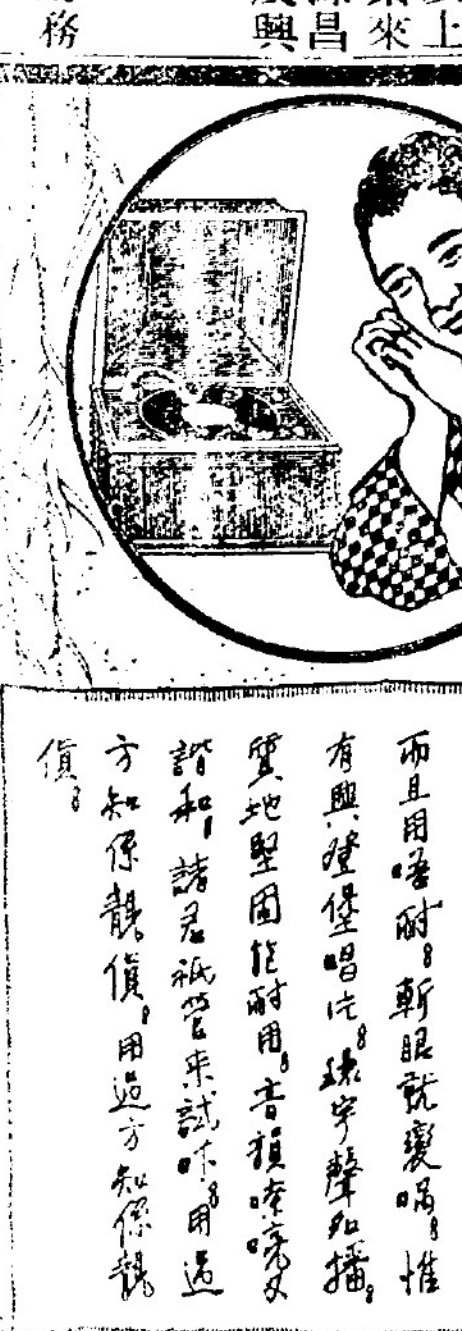 上
來
昌
興
務
而且用唔耐。斬眼就變喎。惟
有興登堡唱片。環宇聲名播。
質地堅固能耐用。音韻嘹喨又
諧和，諸君祇管來試吓。用過
方知係靚貨。用過方知係靚
貨。